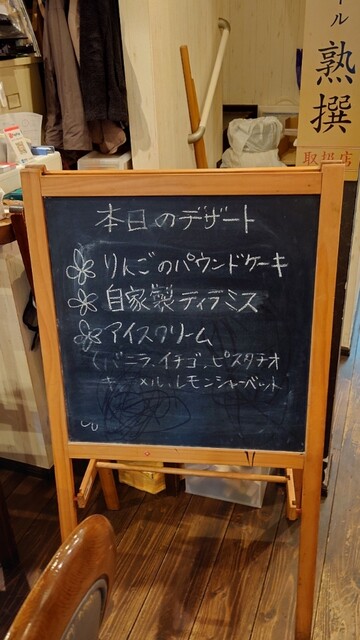 ール
熟撰
取扱店
本日のデザート
りんごのパウンドケーキ
自家製ティラミス
アイスクリーム
(バニラ、イチゴ、ピスタチオ
キャラメル、レモンシャーベット